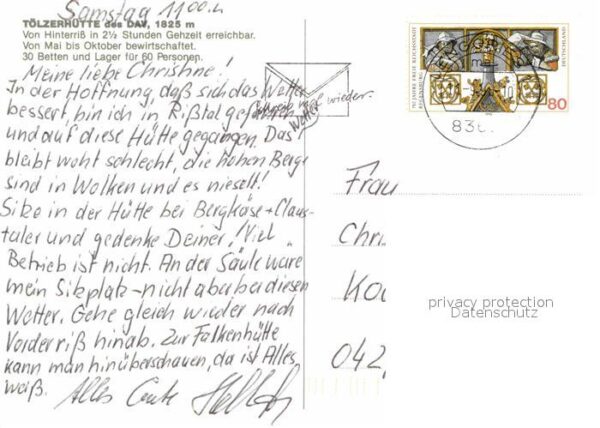 Samstag 11 00 h
TÖLZERHÜTTE des DAV, 1825 m
Von Hinterriß in 2½ Stunden Gehzeit erreichbar.
Von Mai bis Oktober bewirtschaftet.
30 Betten und Lager für 60 Personen.
Meine liebe Christine!
In der Hoffnung, daß sich das Wetter
bessert, bin ich in Rißtal gefahren
und auf diese Hütte gegangen. Das
bleibt wohl schlecht, die hohen Berge
sind in Wolken und es nieselt!
Size in der Hütte bei Bergkäse + Claus-
taler und gedenke Deiner! Viel
Betrieb ist nicht. An der Säule ware
mein Sitzplatz - nicht aber bei diesen
Wetter. Gehe gleich wieder nach
Vorderriß hinab. Zur Falkenhütte
kann man hinüberschauen, da ist Alles
weiß. Alles Gute
wieder.
Frau
Chri
Ko
042
750 JAHRE FREIE REICHSSTADT
REGENSBURG
DEUTSCHLAND
80
LENGGRIES
836
privacy protection
Datenschutz